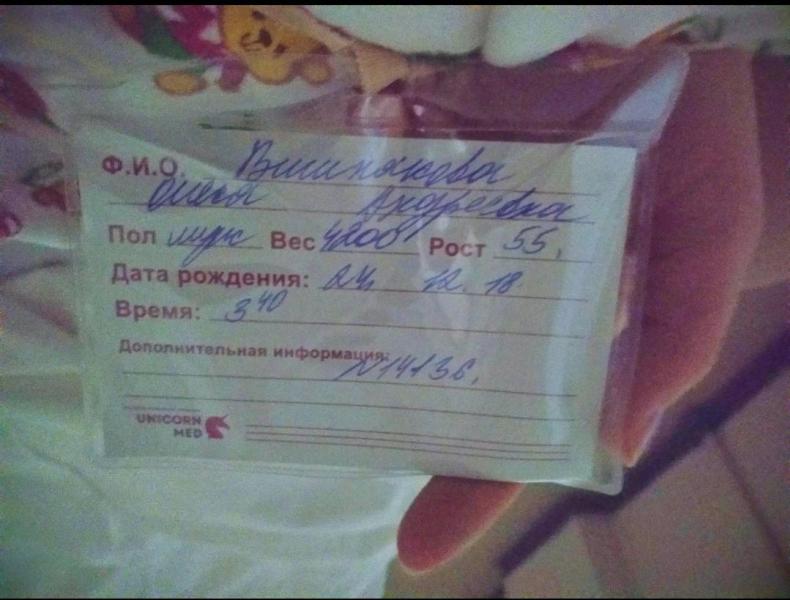 Ф.И.О. Вишнякова
Олеся Андреевна
Пол муж Вес 4200 Рост 55,
Дата рождения: 24. 12. 18
Время: 3 40
Дополнительная информация:
N 14136.
UNICORN
MED